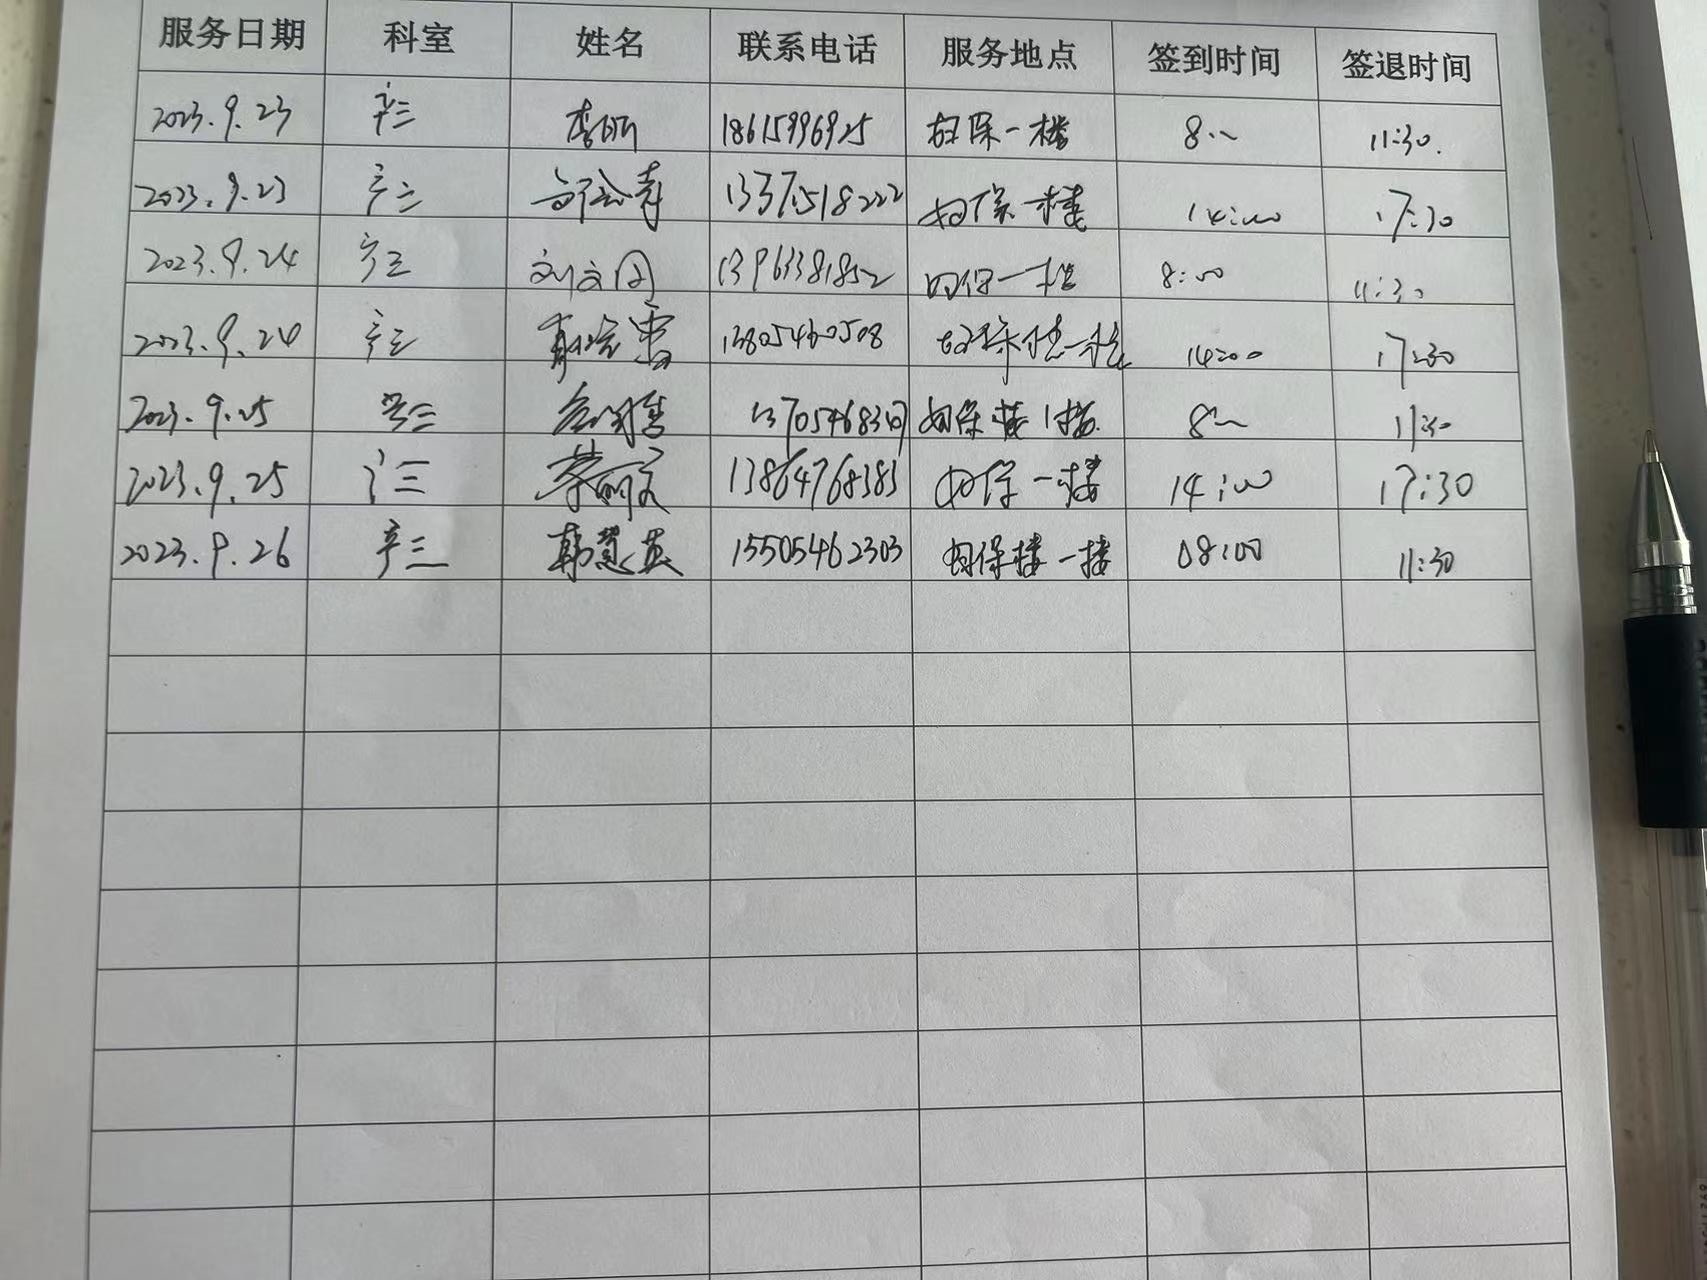 服务日期 科室 姓名 联系电话 服务地点 签到时间 签退时间
2023.9.23 产三 李丽 18615996925 妇保一楼 8:00 11:30.
2023.9.23 产三 13375518222 妇保一楼 14:00 17:30
2023.9.24 产三 刘文圆 13963381852 妇保一楼 8:00 11:30
2023.9.24 产三 13805460508 妇保楼一楼 14:00 17:30
2023.9.25 产三 妇保楼1楼 8:00 11:30
2023.9.25 产三 13864768383 妇保一楼 14:00 17:30
2023.9.26 产三 韩慧英 15505462303 妇保楼一楼 08:00 11:30